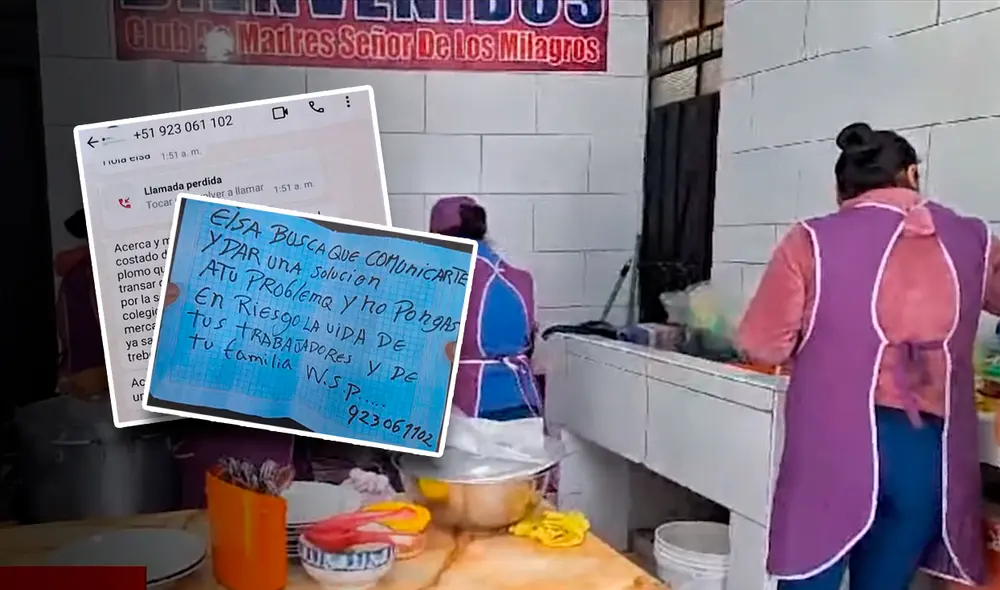 BIENVENIDOS
Club De Madres Señor De Los Milagros
+51 923 061 102
Hola elsa 1:51 a. m.
Llamada perdida
Tocar volver a llamar 1:51 a. m.
Acerca y
costado
plomo
transar
por la
colegio
merca
ya
ELSA BUSCA QUE COMUNICARTE
Y DAR UNA SOLUCION
A TU PROBLEMA Y NO PONGAS
EN RIESGO LA VIDA DE
TUS TRABAJADORES Y DE
TU FAMILIA W.S.P....
923061102